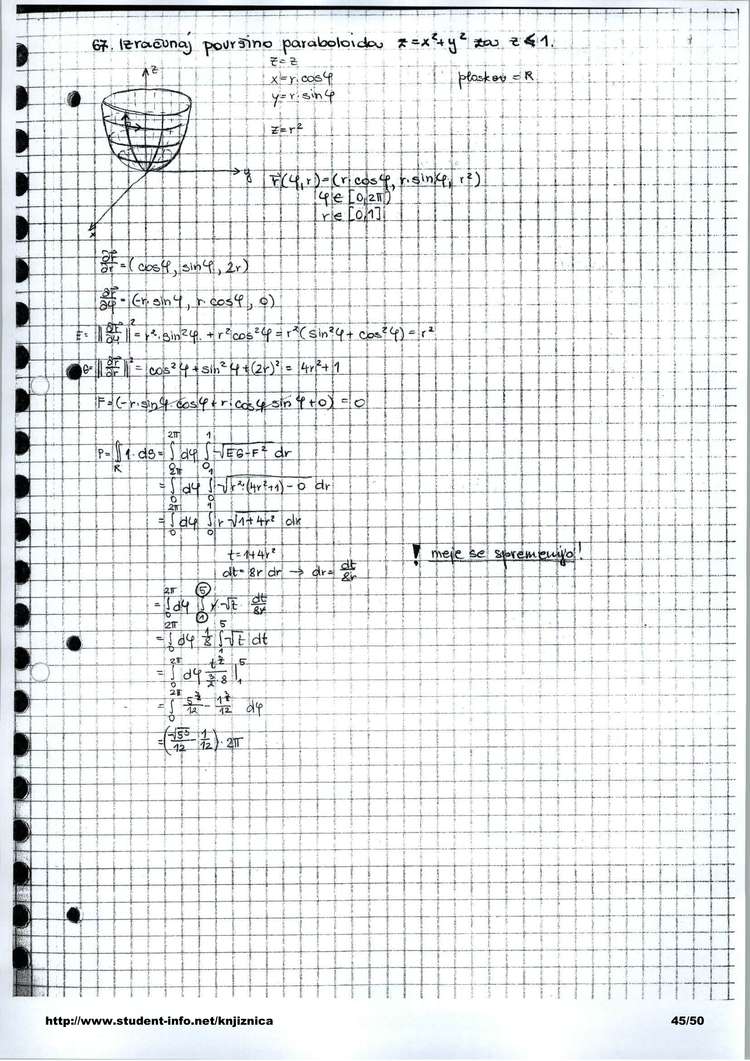 67. Izračunaj površino paraboloida z=x²+y² za z≤1.
z=z
x=r·cosφ
y=r·sinφ
ploskev = R
z=r²
z
y
x
r⃗(φ,r)=(r·cosφ, r·sinφ, r²)
φ∈[0,2π)
r∈[0,1]
∂r⃗/∂r=(cosφ, sinφ, 2r)
∂r⃗/∂φ=(-r·sinφ, r·cosφ, 0)
E=‖∂r⃗/∂φ‖²=r²·sin²φ+r²cos²φ=r²(sin²φ+cos²φ)=r²
G=‖∂r⃗/∂r‖²=cos²φ+sin²φ+(2r)²=4r²+1
F=(-r·sinφ cosφ+r·cosφ sinφ+0)=0
P=∬_R 1·dS=∫_0^{2π} dφ ∫_0^1 √(EG-F²) dr
=∫_0^{2π} dφ ∫_0^1 √(r²·(4r²+1)-0) dr
=∫_0^{2π} dφ ∫_0^1 r√(1+4r²) dr
t=1+4r²
! meje se spremenijo!
dt=8r dr → dr=dt/8r
=∫_0^{2π} dφ ∫_1^5 r·√t dt/8r
=∫_0^{2π} dφ 1/8 ∫_1^5 √t dt
=∫_0^{2π} dφ t^{3/2}/(3/2·8) |_1^5
=∫_0^{2π} 5^{3/2}/12 - 1^{3/2}/12 dφ
=(√5³/12 - 1/12)·2π
http://www.student-info.net/knjiznica
45/50